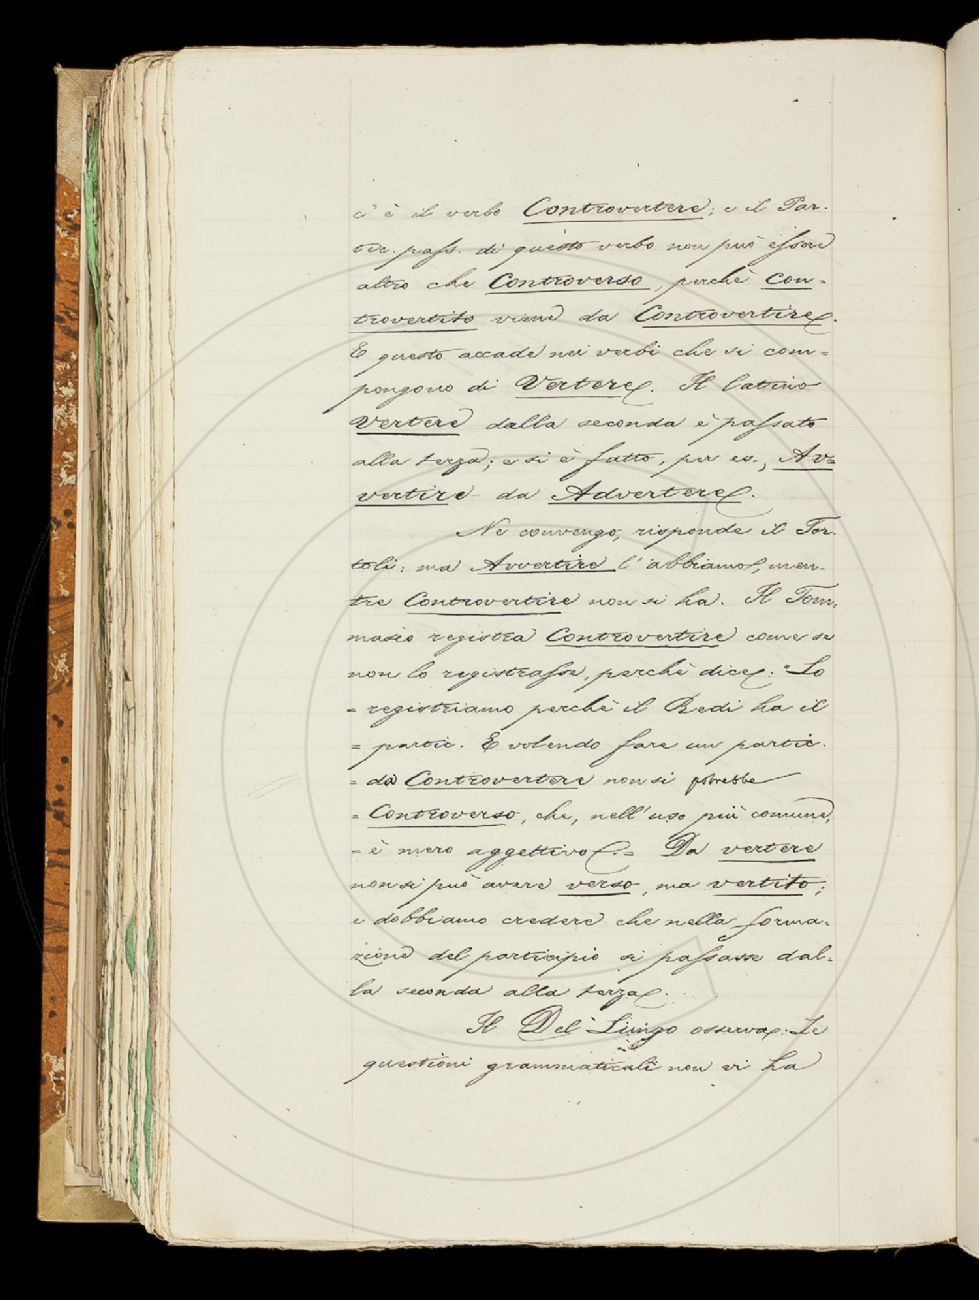 c'è il verbo Controvertere; e il Par-
tic. pass. di questo verbo non può essere
altro che Controverso, perchè Con-
trovertito viene da Controvertire.
E questo accade nei verbi che si com-
pongono di Vertere. Il latino
Vertere dalla seconda è passato
alla terza; e si è fatto, per es., Av-
vertire da Advertere.
Ne convengo, risponde il Tor-
toli: ma Avvertire l'abbiamo, men-
tre Controvertire non si ha. Il Tom-
maseo registra Controvertire come se
non lo registrasse, perchè dice: "Lo
= registriamo perchè il Redi ha il
= partic. E volendo fare un partic.
= da Controvertere non si potrebbe
= Controverso, che, nell'uso più comune,
= è mero aggettivo.= Da vertere
non si può avere verso, ma vertito;
e dobbiamo credere che nella forma-
zione del participio si passasse dal-
la seconda alla terza.
Il Del Lungo osserva: Le
questioni grammaticali non vi ha